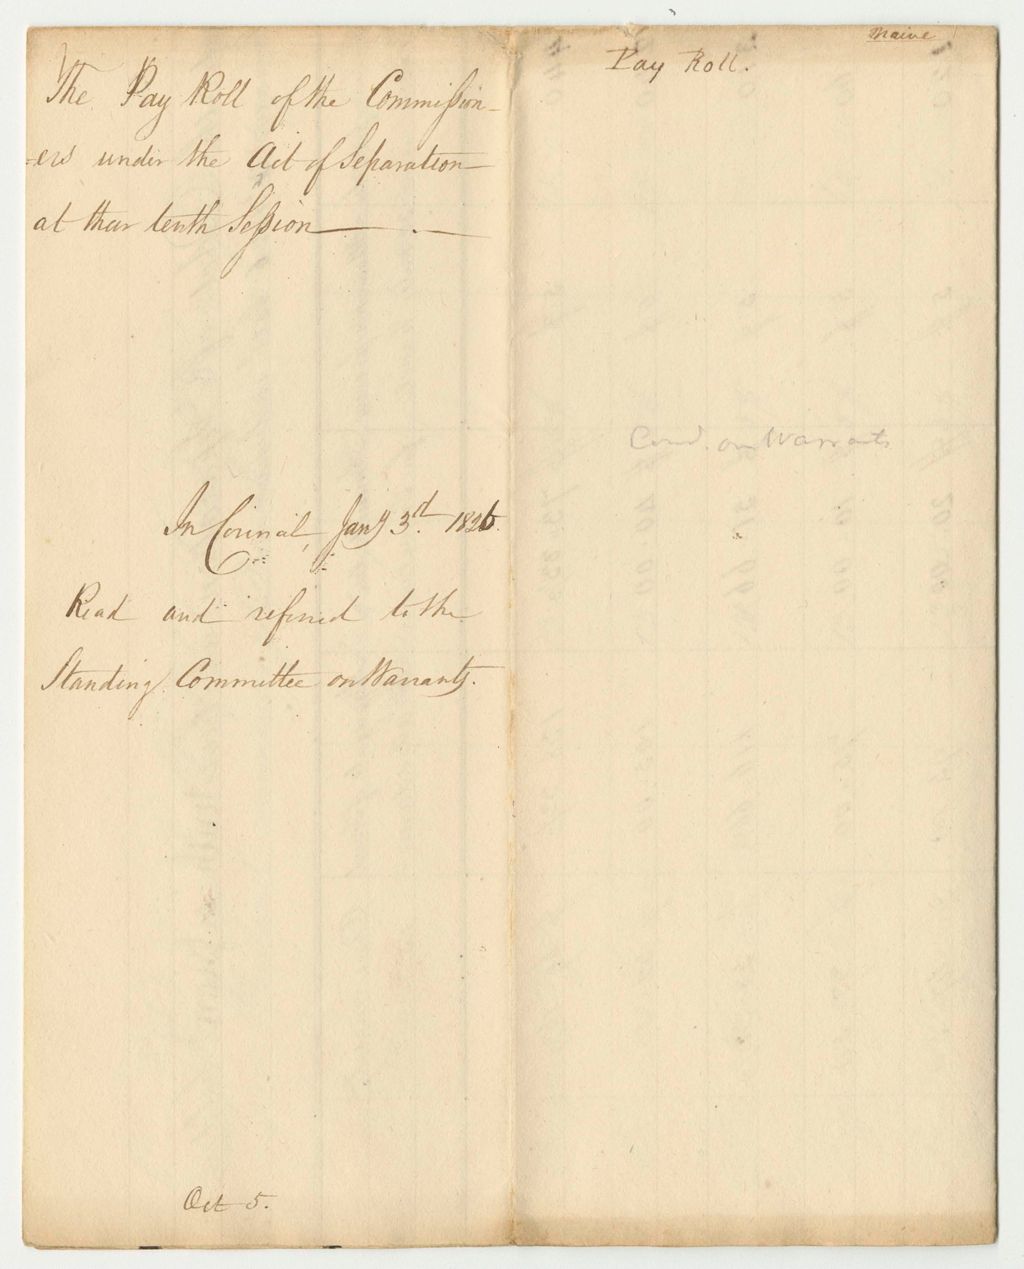 The Pay Roll of the Commission-
-ers under the Act of Separation
at their tenth Session
In Council, Jany 3rd 1826.
Read and referred to the
Standing Committee on Warrants.
Oct 5.
Maine
Pay Roll.
Comd. on Warrants